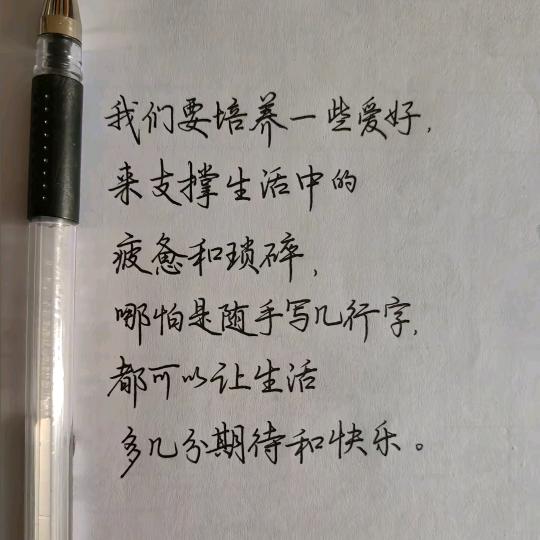 我们要培养一些爱好，
来支撑生活中的
疲惫和琐碎，
哪怕是随手写几行字，
都可以让生活
多几分期待和快乐。